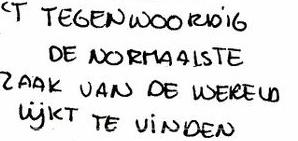 'T TEGENWOORDIG
DE NORMAALSTE
ZAAK VAN DE WERELD
LIJKT TE VINDEN